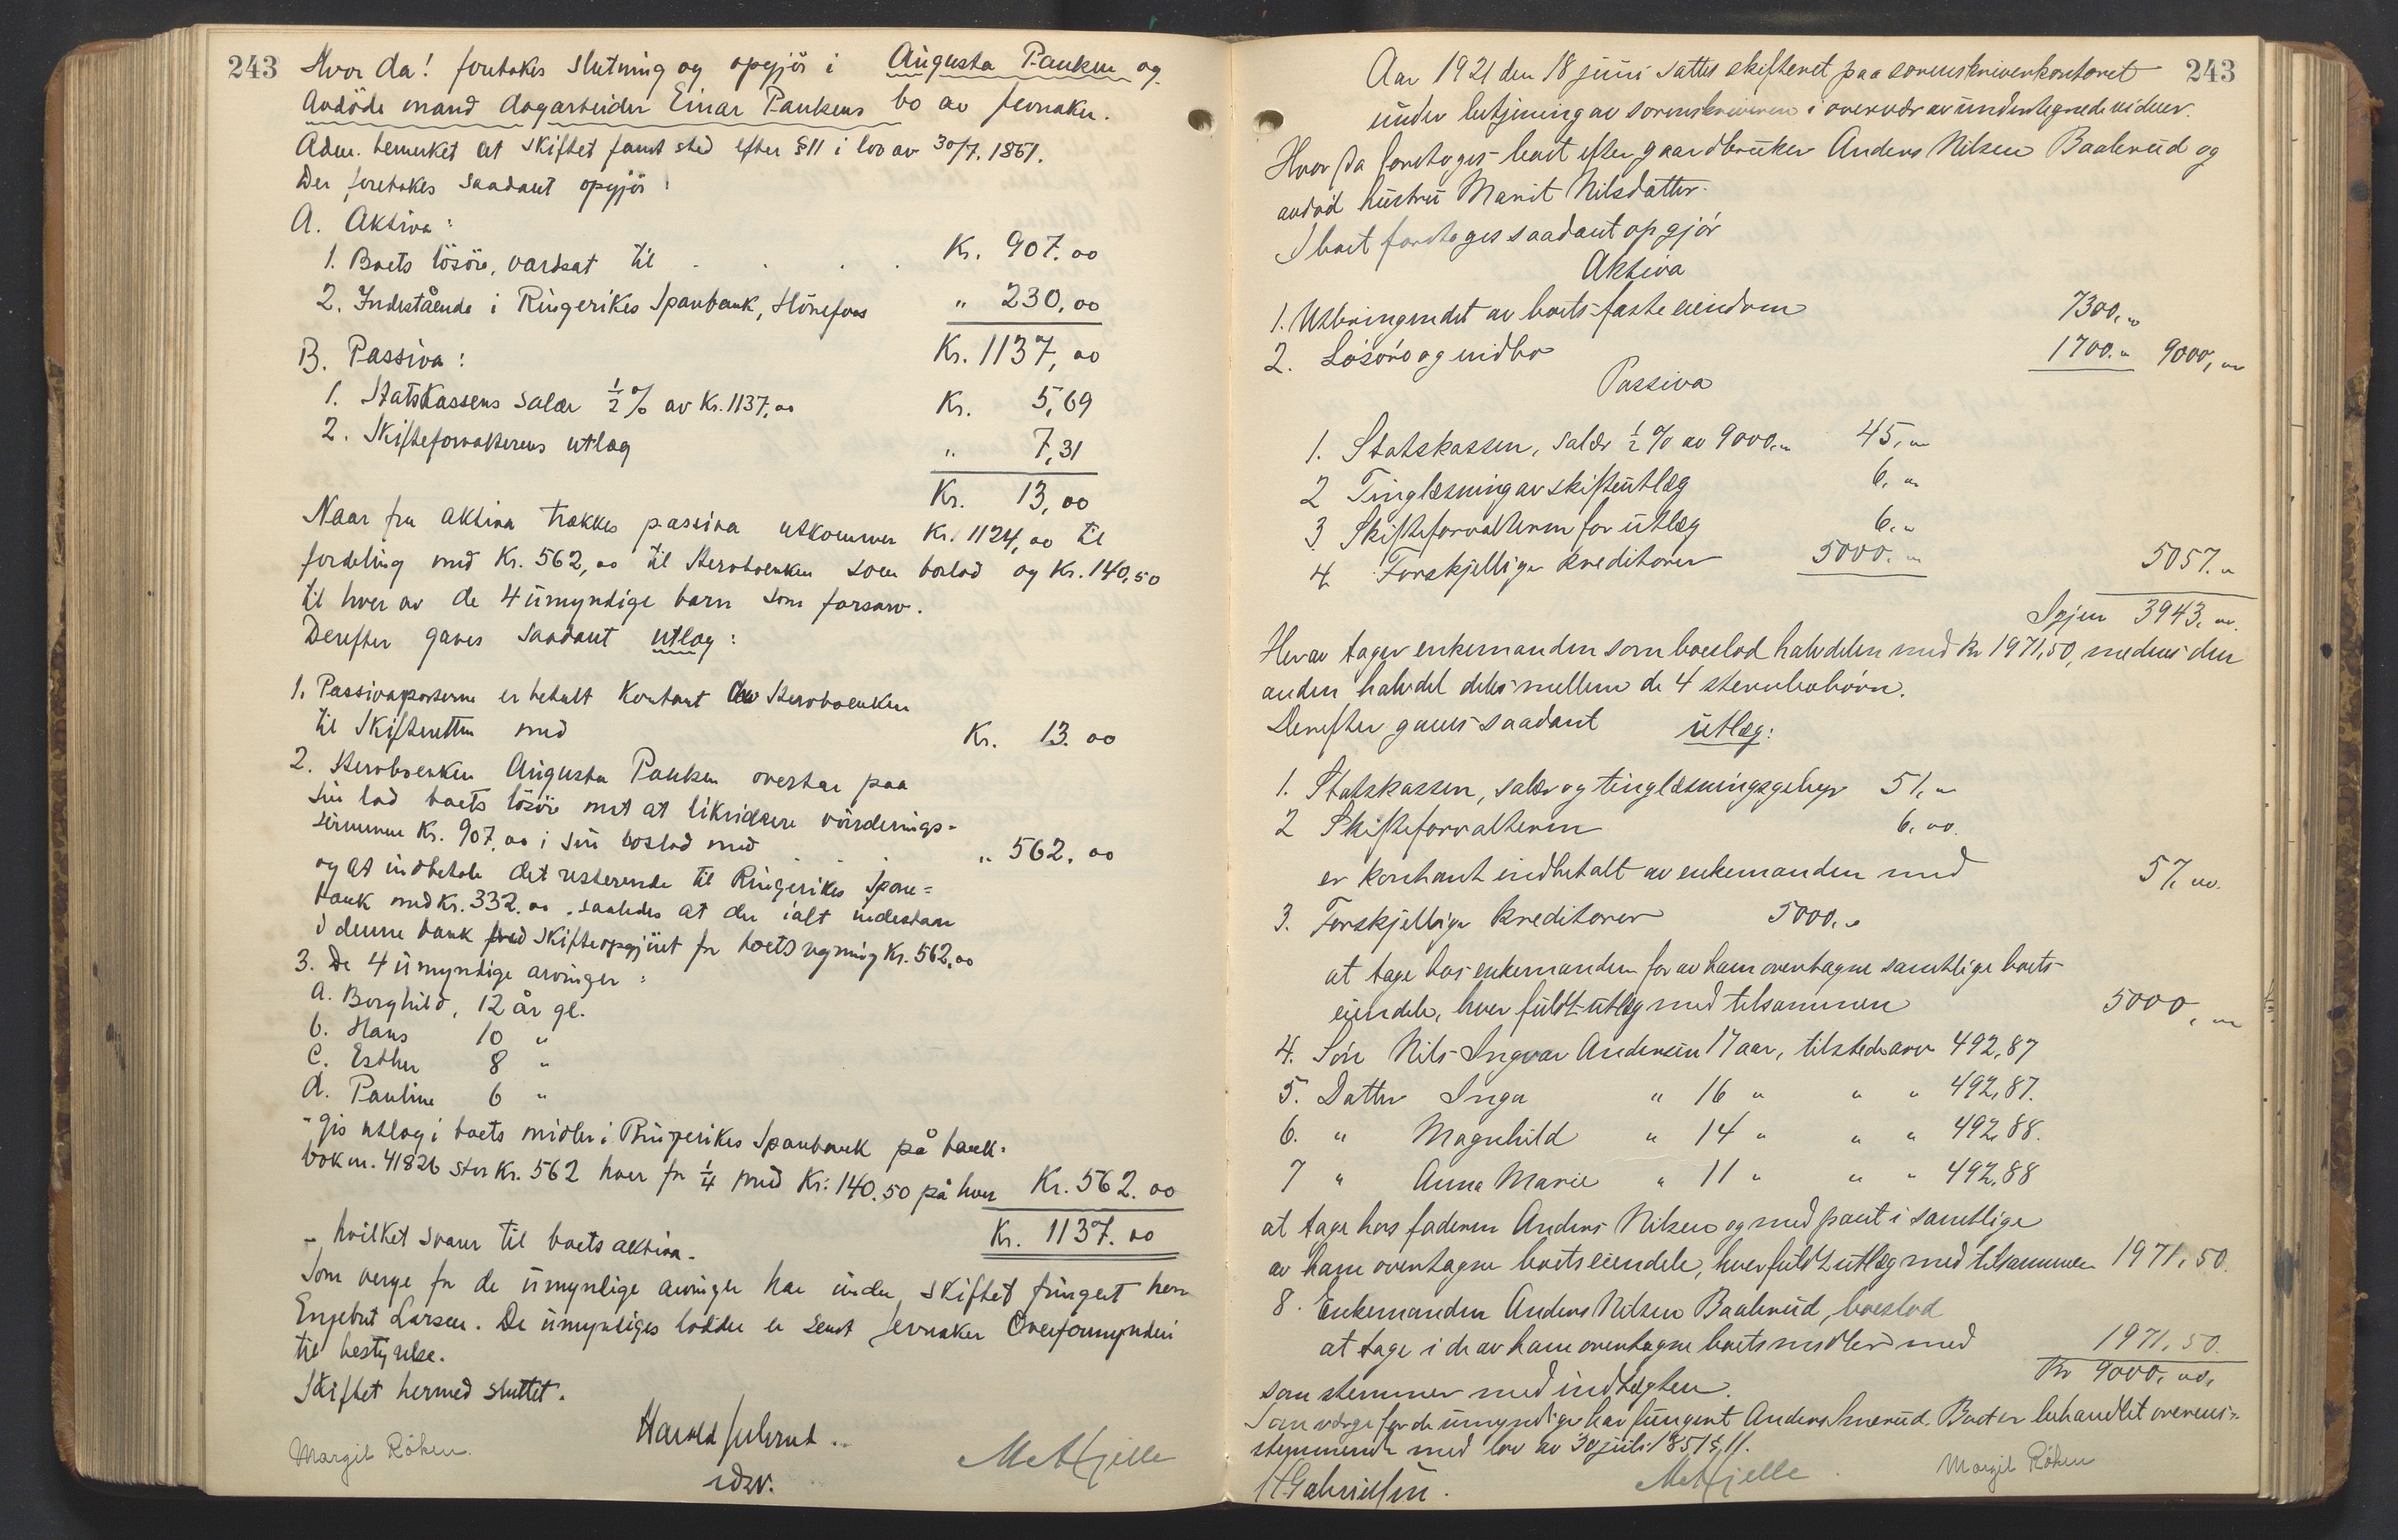 243
Hvor da! foretokes slutning og opgjör i Augusta Pauken og
avdöde mand dagarbeider Einar Paukens bo av Jevnaker.
Adm. bemerket at skiftet fandt sted efter § 11 i lov av 30/7. 1851.
Der foretokes saadant opgjör:
A. Aktiva:
1. Boets lösöre, vardsat til . . . . Kr. 907.00
2. Indestående i Ringerikes Sparebank, Hönefoss " 230,00
Kr. 1137,00
B. Passiva:
1. Statskassens salær ½ % av Kr. 1137,00 Kr. 5,69
2. Skifteforvalterens utlæg " 7,31
Kr. 13,00
Naar fra aktiva trækkes passiva utkommer Kr. 1124,00 til
fordeling med Kr. 562,00 til Stervboenken som boslod og Kr. 140,50
til hver av de 4 umyndige barn som farsarv.
Derefter gaves saadant utlæg:
1. Passivaposterne er betalt kontant av Stervboenken
til Skifteretten med Kr. 13.00
2. Sterboenken Augusta Pauken overtar paa
sin lod boets lösöre mot at likvidere vurderings-
summen Kr. 907.00 i sin boslod med " 562.00
og at indbetale det resterende til Ringerikes Spare=
bank med Kr. 332.00. saaledes at der ialt indestaar
i denne bank ved skifteopgjöret for boets regning Kr. 562,00
3. De 4 umyndige arvinger:
a. Borghild, 12 år gl.
b. Hans 10 "
c. Esther 8 "
d. Pauline 6 "
- gis utlæg i boets midler i Ringerikes Sparebank på bank-
bok nr. 41826 stor Kr. 562 hver for ¼ med Kr. 140.50 på hver Kr. 562.00
- hvilket svarer til boets aktiva. Kr. 1137.00
Som verge for de umyndige arvinger har under skiftet fungert herr
Engebret Larsen. De umyndiges lodder er sendt Jevnaker Overformynderi
til bestyrelse.
Skiftet hermed sluttet.
Margit Röken.
M Hjelle
243
Aar 1921 den 18 juni sattes skifteret paa sorenskriverkontoret
under betjening av sorenskriveren i overvær av undertegnede vidner.
Hvor da foretoges boet efter gaardbruker Anders Nilsen Baalerud og
avdöd hustru Marit Nilsdatter.
I boet foretoges saadant opgjör
Aktiva
1. Utbringendet av boets faste eiendom 7300,00
2. Lösöre og indbo 1700.00 9000,00
Passiva
1. Statskassen, salær ½ % av 9000.00 45,00
2 Tinglæsning av skifteutlæg 6,00
3 Skifteforvalteren for utlæg 6,00
4. Forskjellige kreditorer 5000.00 5057.00
Igjen 3943,00.
Herav tager enkemanden som boeslod halvdelen med kr 1971,50, medens den
anden halvdel deles mellem de 4 stervbobörn.
Derefter gaves saadant utlæg:
1. Statskassen, salær og tinglæsningsgebyr 51,00
2 Skifteforvalteren 6,00.
er kontant indbetalt av enkemanden med 57,00.
3. Forskjellige kreditorer 5000,00
at tage hos enkemanden for av ham overtagne samtlige boets
eiendele, hver fuldt utlæg med tilsammen 5000,00
4. Sön Nils Ingvar Andersen 17 aar, tilstedes arv 492,87
5. Datter Inga " 16 " " " 492,87.
6. " Magnhild " 14 " " " 492,88.
7 " Anna Marie " 11 " " " 492,88
at tage hos faderen Anders Nilsen og med pant i samtlige
av ham overtagne boets eiendele, hver fuldt utlæg med tilsammen 1971,50.
8. Enkemanden Anders Nilsen Baalerud, boeslod
at tage i de av ham overtagne boets midler med 1971,50.
Kr 9000,00.
som stemmer med indtægten.
Som værge for de umyndige har fungert Anders Smerud. Boet er behandlet overens=
stemmende med lov av 30 juli 1851 § 11.
H Gabrielsen.
M Hjelle.
Margit Röken